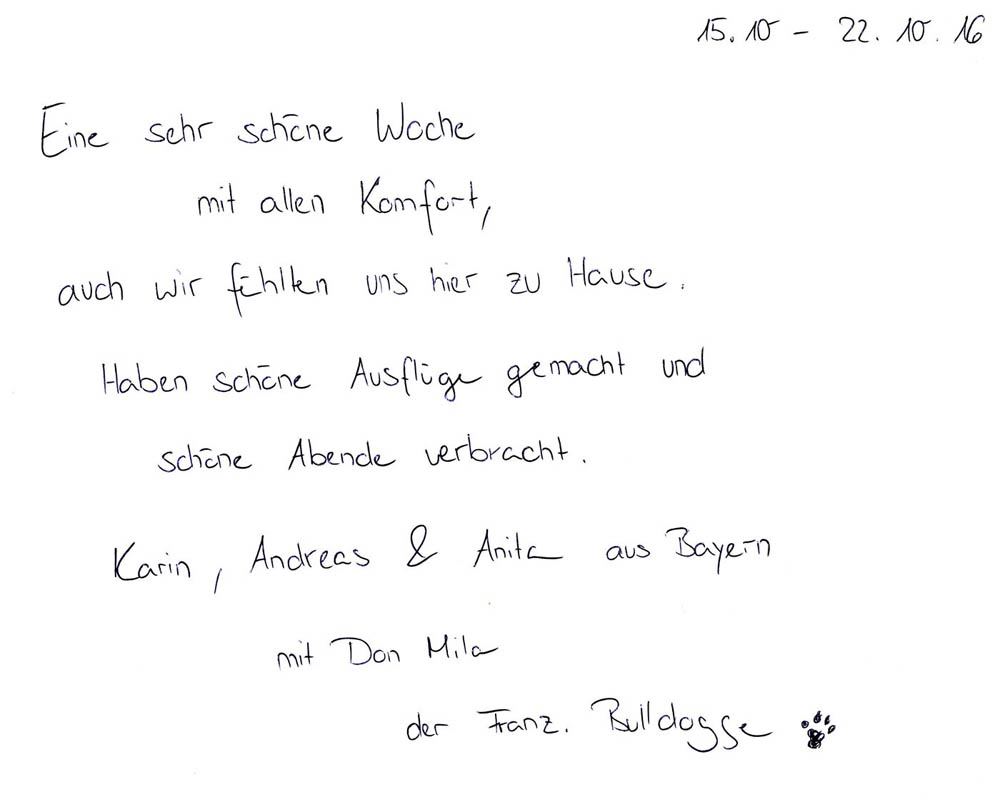 15.10 - 22.10.16
Eine sehr schöne Woche
mit allen Komfort,
auch wir fühlten uns hier zu Hause.
Haben schöne Ausflüge gemacht und
schöne Abende verbracht.
Karin, Andreas & Anita aus Bayern
mit Don Mila
der Franz. Bulldogge